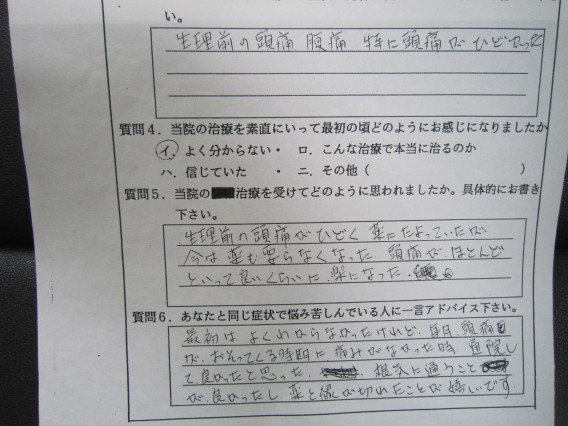 い。
生理前の頭痛 腹痛 特に頭痛が ひどかった
質問4．当院の治療を素直にいって最初の頃どのようにお感じになりましたか
イ．よく分からない・ ロ．こんな治療で本当に治るのか
ハ．信じていた ・ ニ．その他（ ）
質問5．当院の治療を受けてどのように思われましたか。具体的にお書き
下さい。
生理前の頭痛がひどく 薬にたよっていたが
今は薬も要らなくなった 頭痛が、ほとんど
といって良いくらいに、楽になった。
質問6．あなたと同じ症状で悩み苦しんでいる人に一言アドバイス下さい。
最初は よくわからなかったけれど、毎月、頭痛
が、おそってくる時期に痛みがなかった時、通院し
て良かったと思った。 根気に通うこと
が、良かったし 薬と縁が切れたことが嬉しいです。